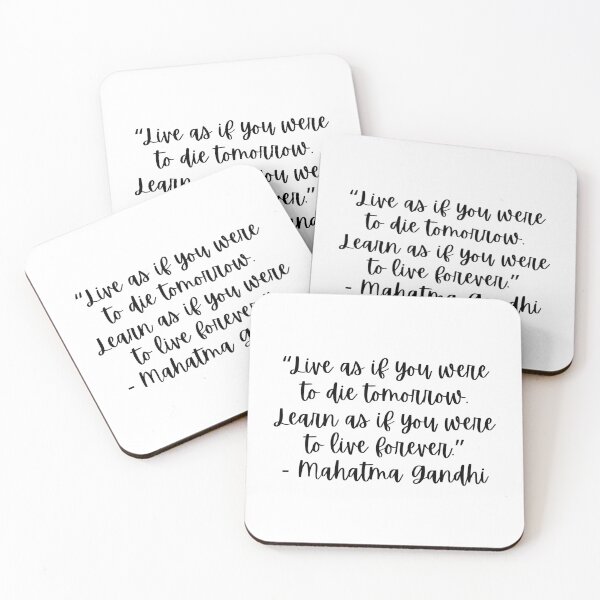 “Live as if you were
to die tomorrow.
Learn you
“Live as if you were
to die tomorrow.
Learn as if you were
to live forever.”
- Mahatma Gandhi
“Live as if you were
to die tomorrow.
Learn as if you were
to live forever
- Mahatma
“Live as if you were
to die tomorrow.
Learn as if you were
to live forever.”
- Mahatma Gandhi